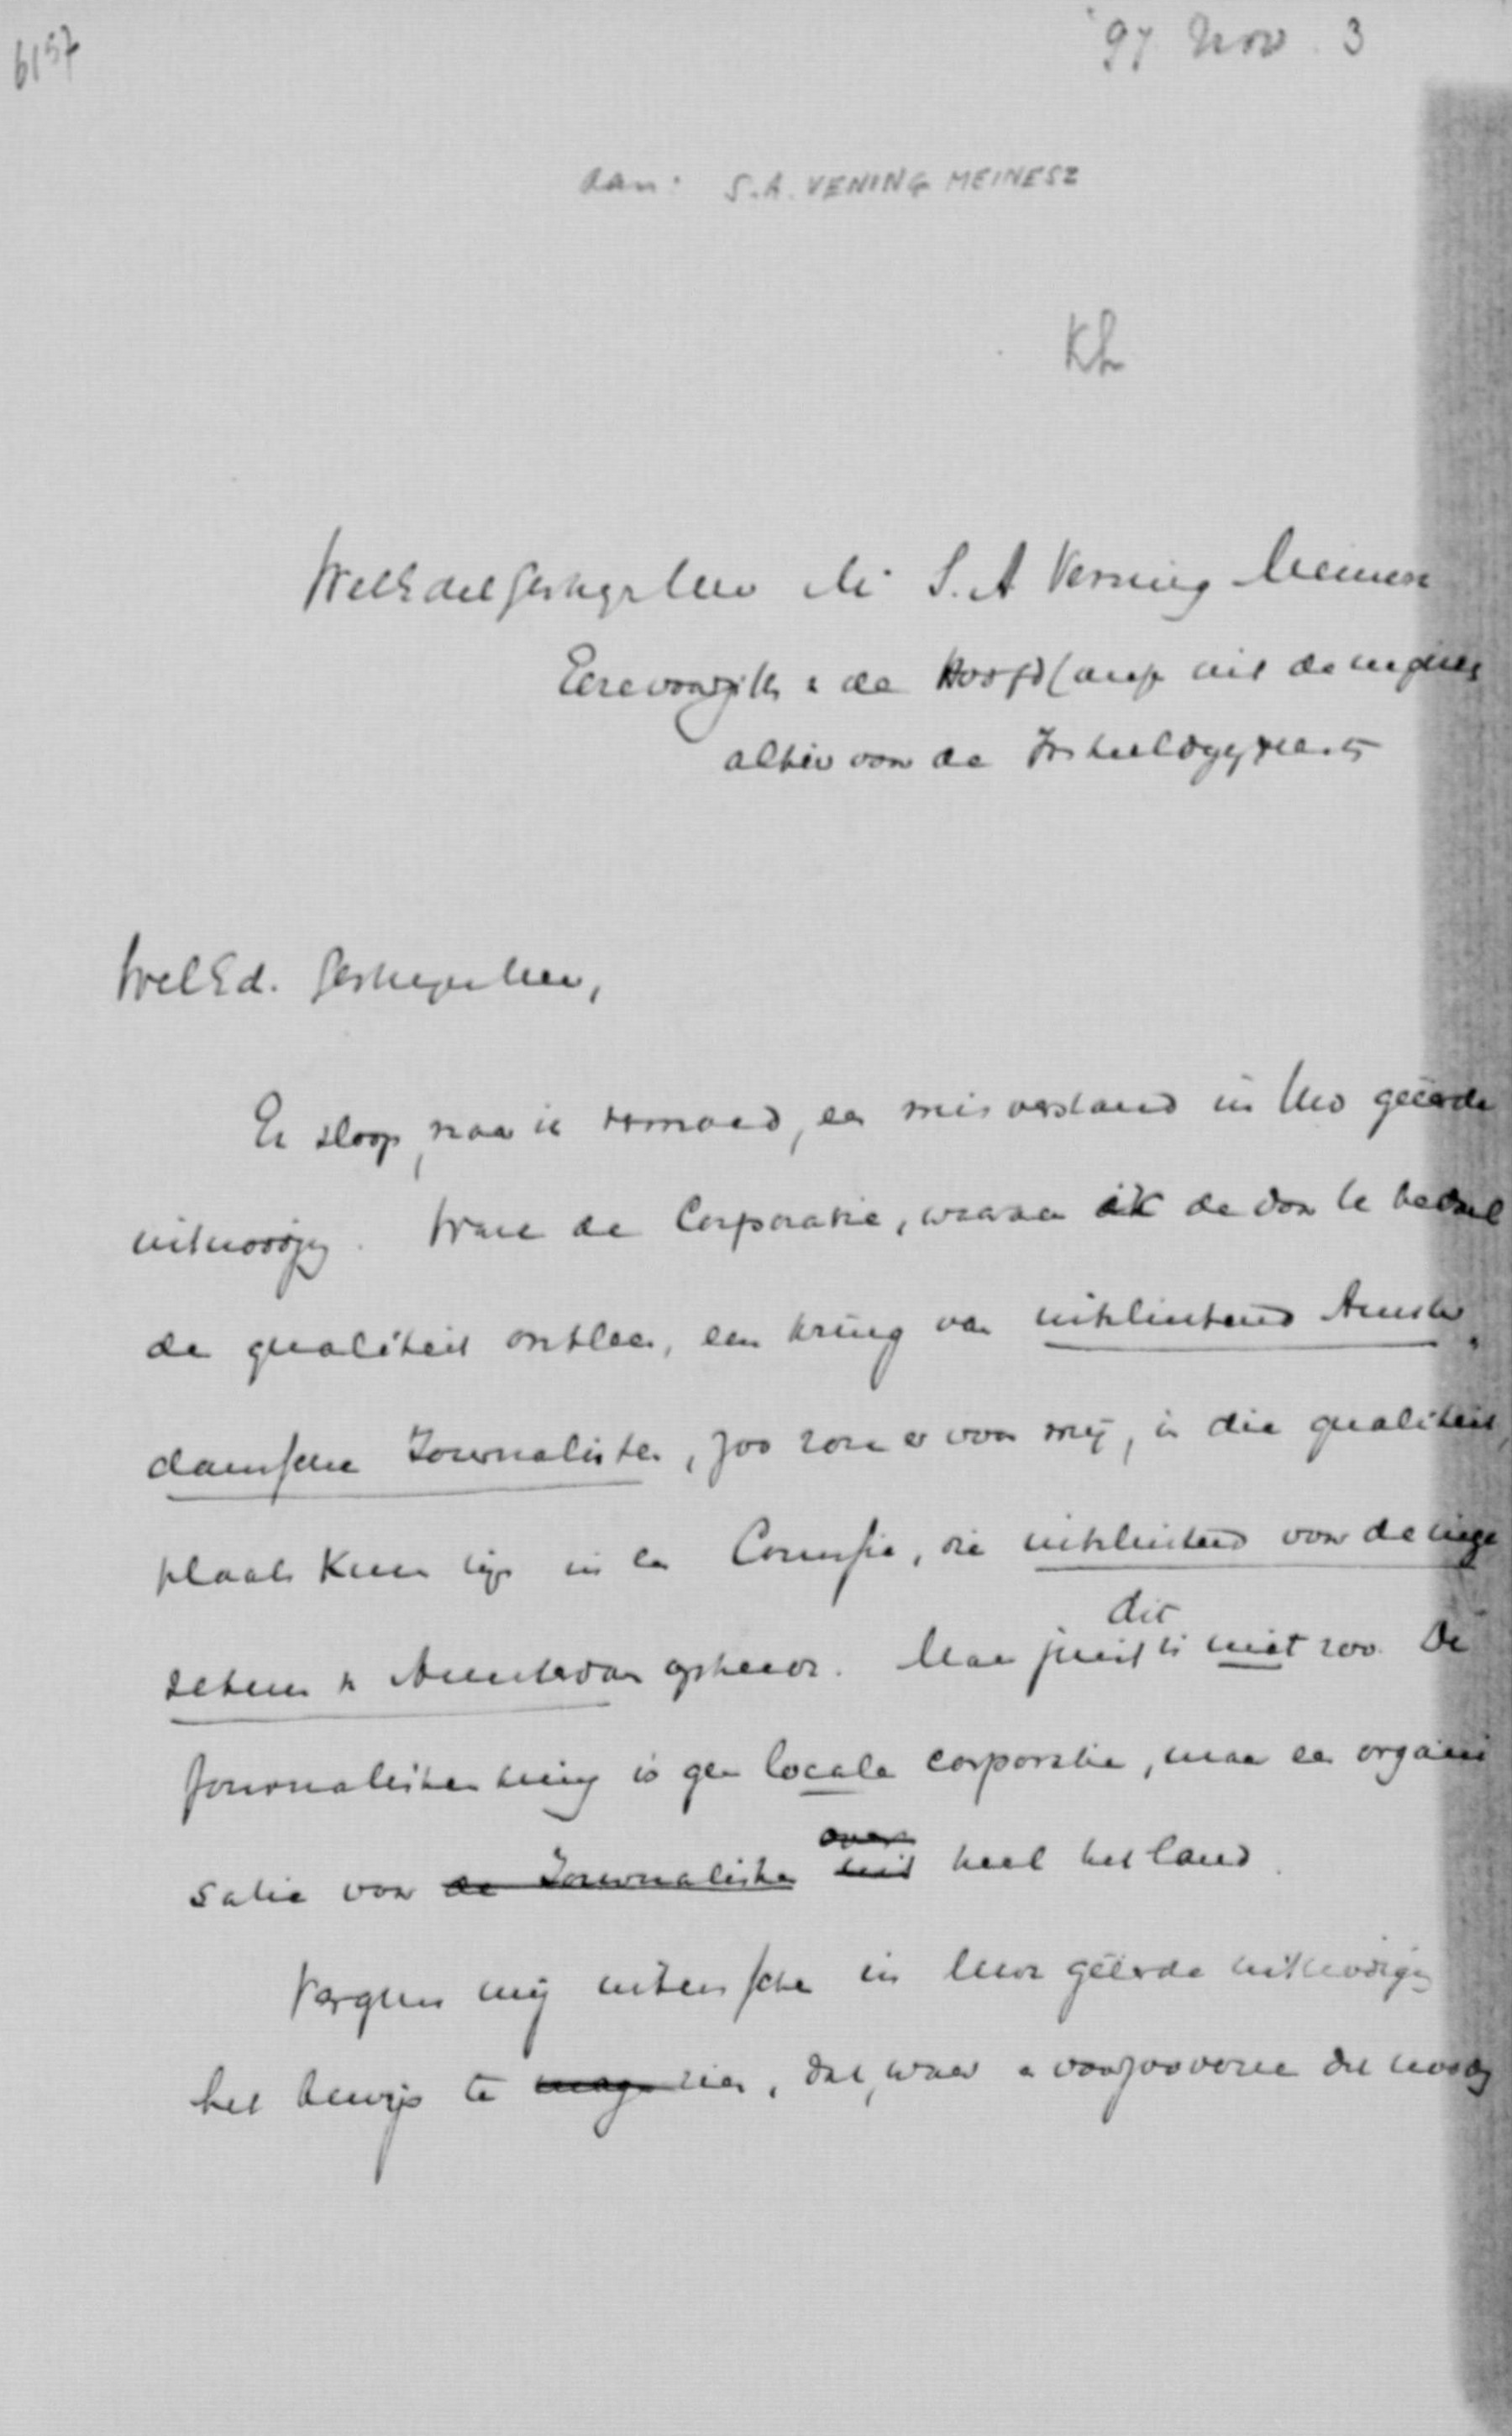 6157
'97 Nov. 3
aan: S.A. VENING MEINESZ
Kh
WelEdelGestrgn Heer Mr S. A Vening Meinesz
Eerevoorzitter de Hoofd uit de
alhier voor de
WelEd. Gestrengen Heer,
Er sloop, naar ik vermoed, een misverstand in Uwe geëerde
uitnoodiging. Ware de Corporatie, waaraan ik de door U bedoel
de qualiteit ontleen, een kring van uitsluitend Amster
damsche Journalisten, zoo zou er voor mij, in die qualiteit,
plaats kunnen zijn in een Commissie, die uitsluitend voor de inge
zetenen v. Amsterdam optreedt. Maar juist dit is niet zoo. De
Journalistenkring is geen locale corporatie, maar een organi
satie voor de Journalisten over uit heel het land.
Vergun mij intusschen in Uwe geëerde uitnoodiging
het bewijs te mogen zien, dat, waar voorzooverre dit noodig